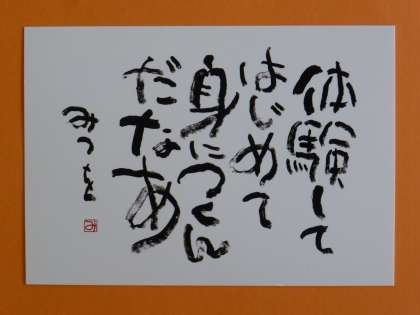 体験して
はじめて
身につくん
だなあ
みつを
み